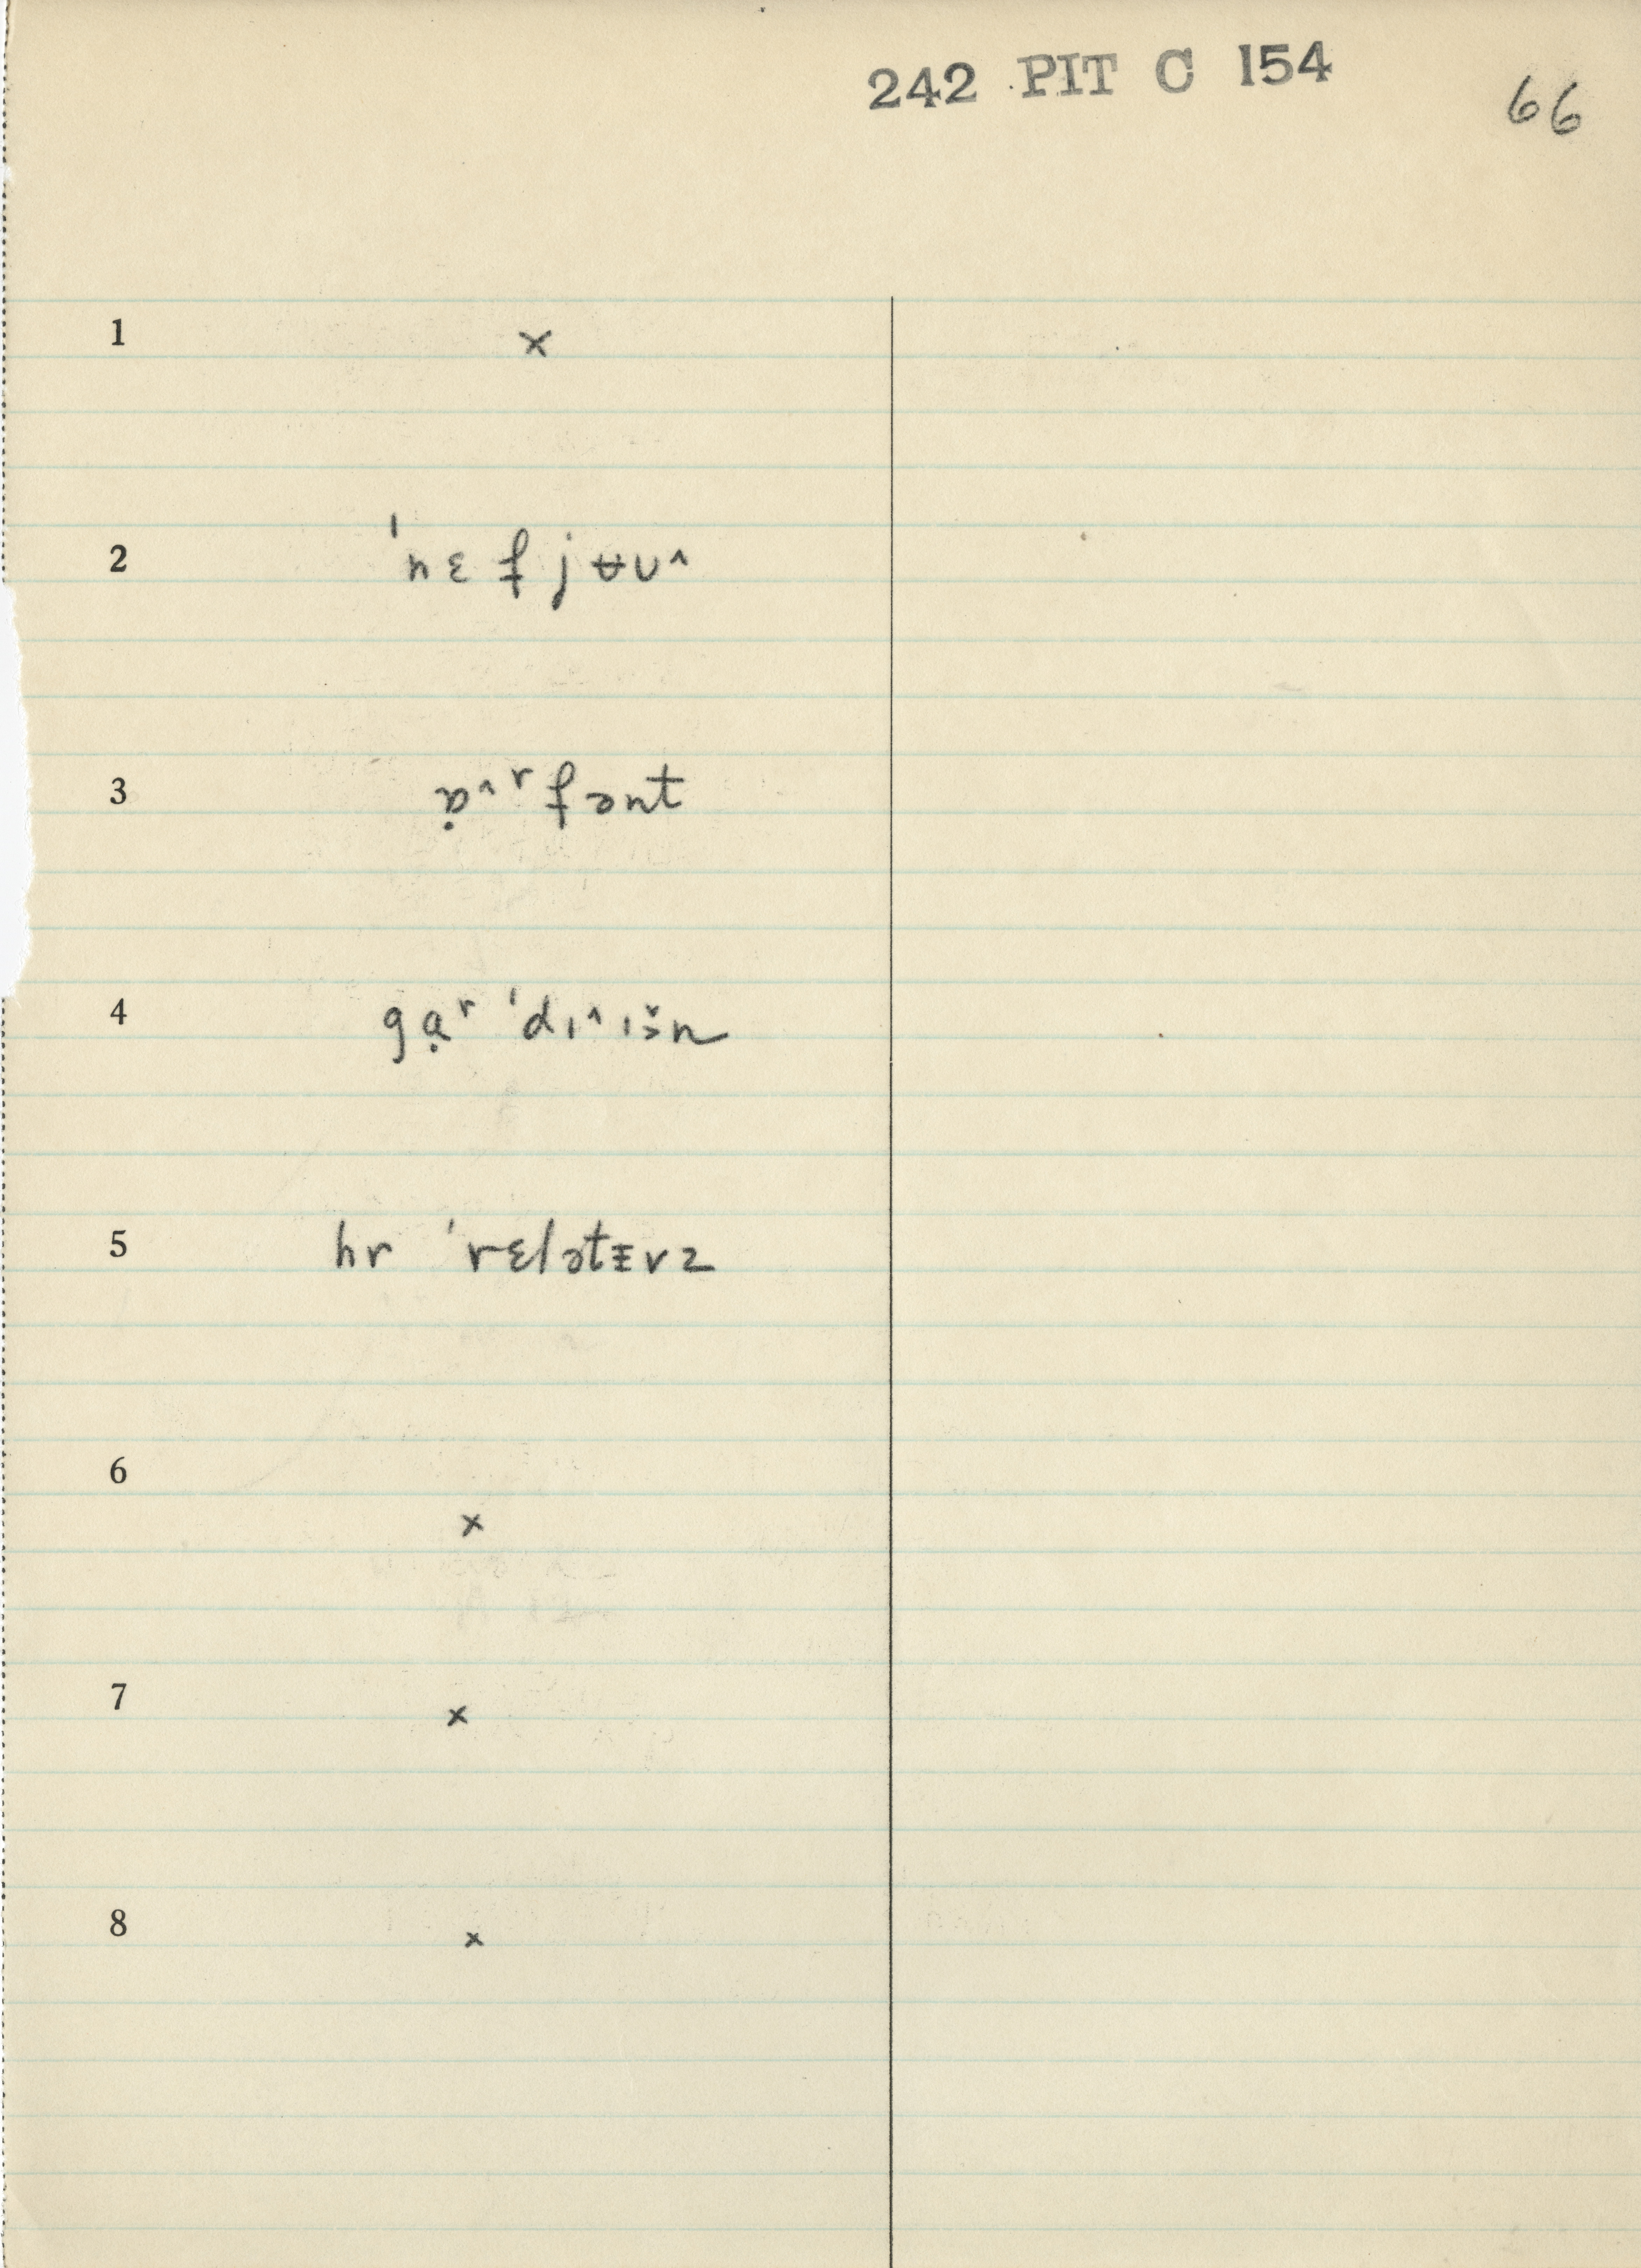 242 PIT C 154
66
1 ×
2 ˈnɛfjʉʊ^
3 ɒ̣^ʳfənt
4 gạʳ ˈdɪ^ɪə̌n
5 hr ˈrɛlətɪ̵vz
6 ×
7 ×
8 ×